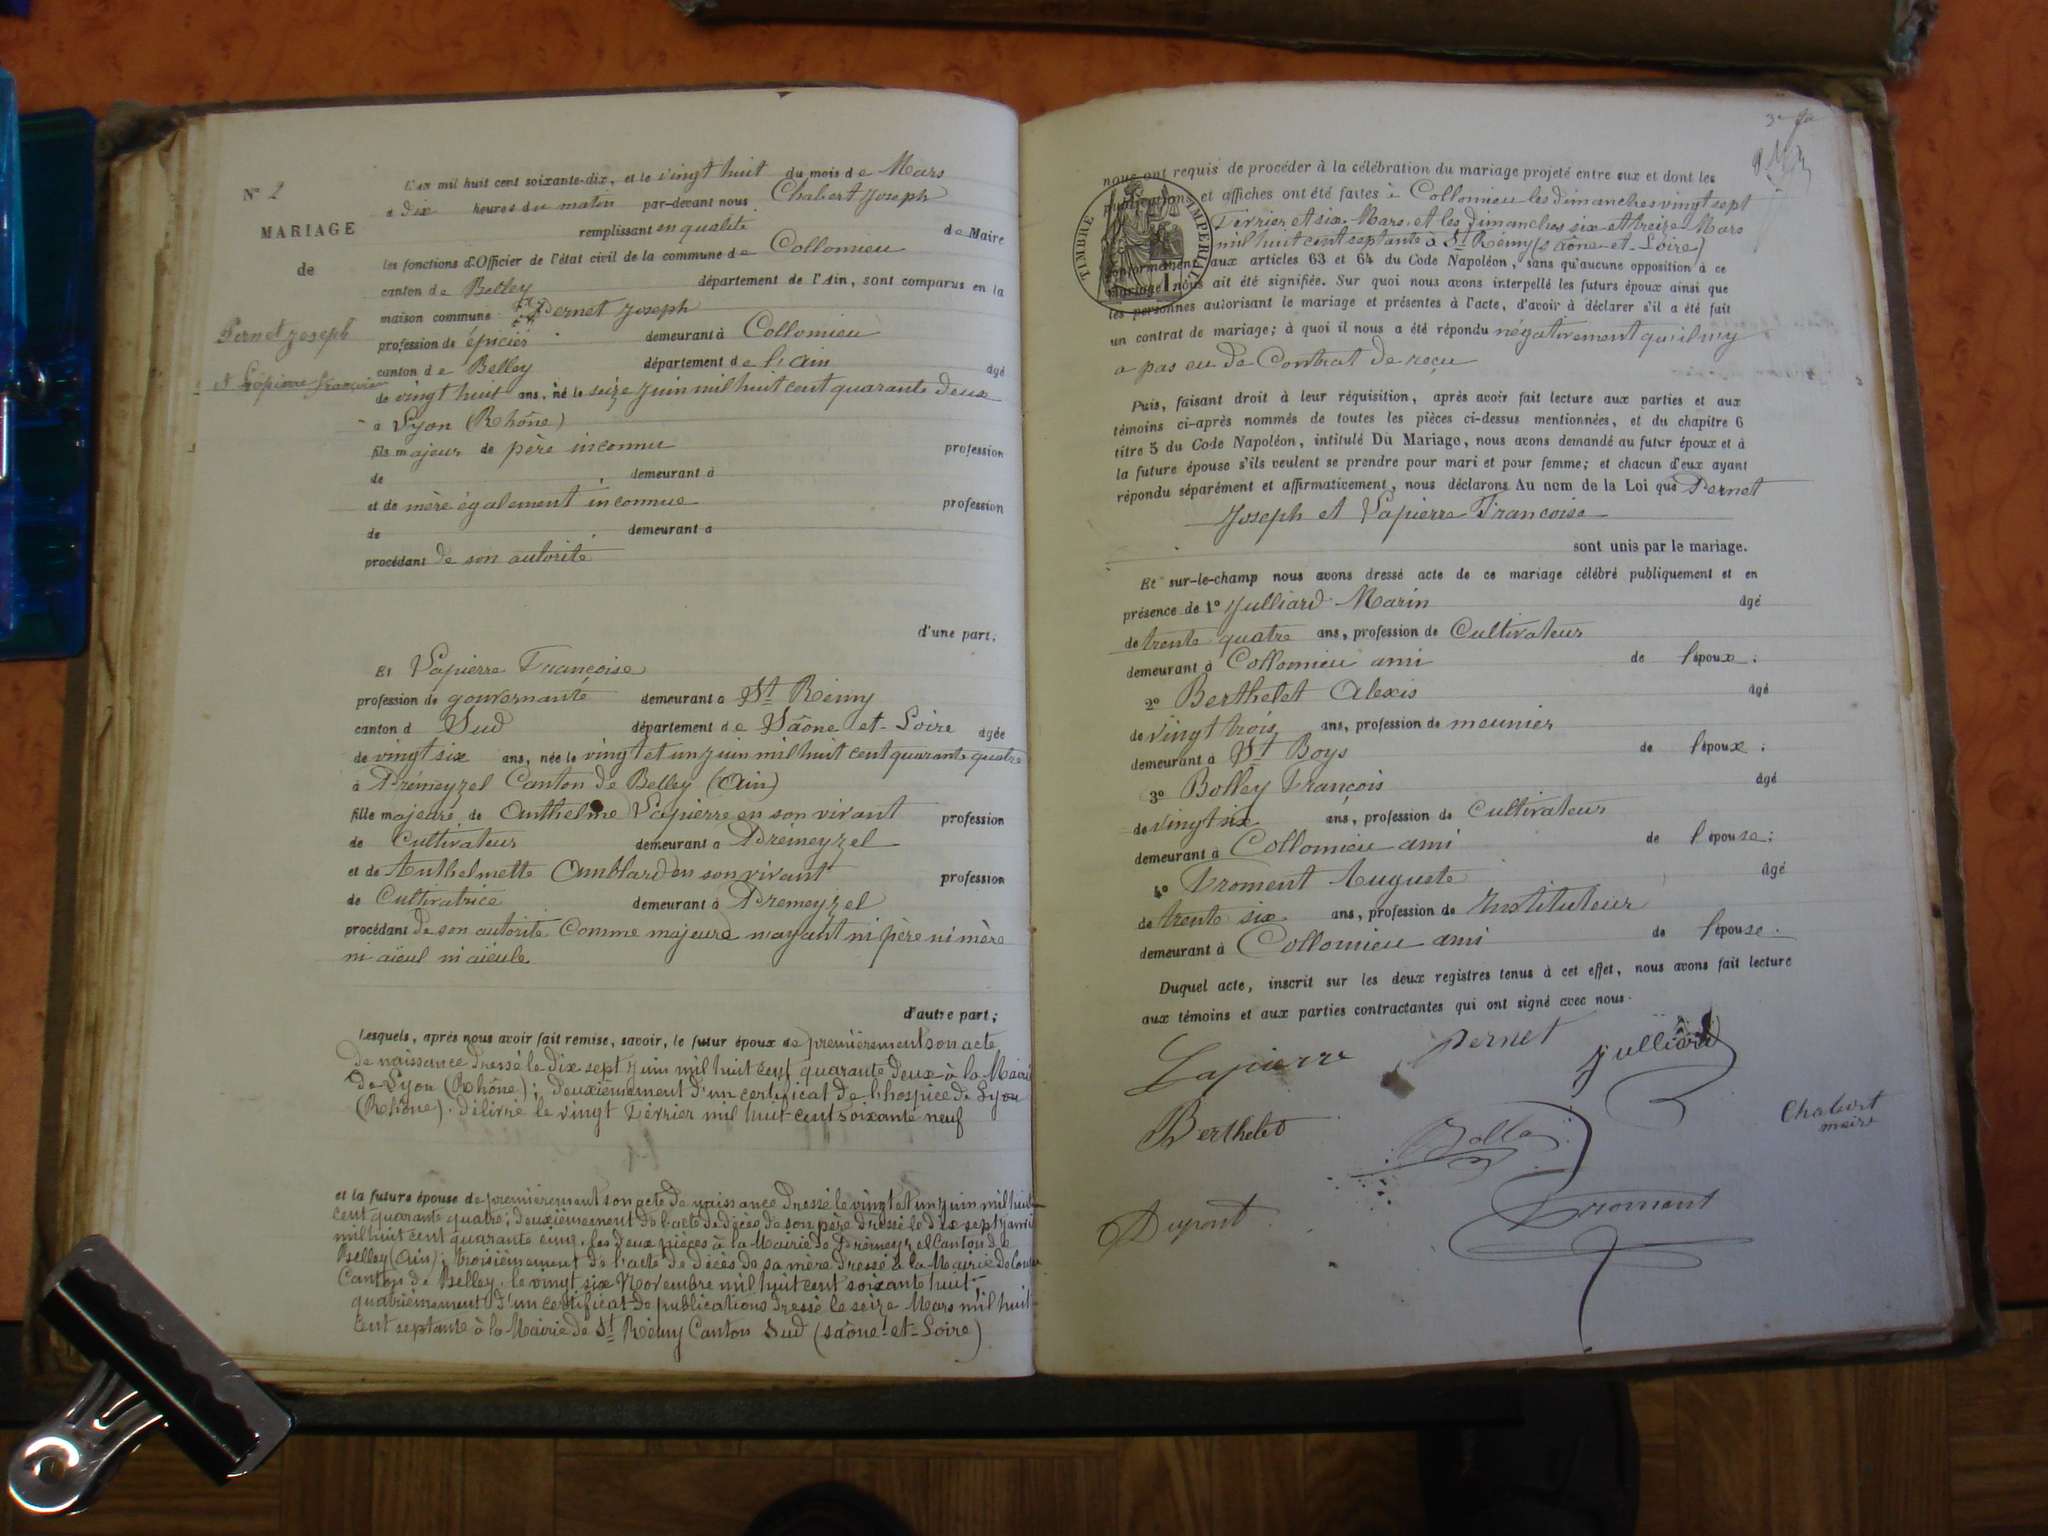 N° 2
MARIAGE
de
Pernet Joseph
et Lapierre françoise
L'an mil huit cent soixante-dix, et le vingt huit du mois de Mars
à dix heures du matin par-devant nous Chabert Joseph
remplissant en qualité de Maire
les fonctions d'Officier de l'état civil de la commune de Collomieu
canton de Belley département de l'Ain, sont comparus en la
maison commune Pernet Joseph
profession de épicier demeurant à Collomieu
canton de Belley département de l'Ain âgé
de vingt huit ans, né le seize Juin mil huit cent quarante deux
à Lyon (Rhône)
fils majeur de père inconnu profession
de demeurant à
et de mère également inconnue profession
de demeurant à
procédant de son autorité
d'une part;
Et Lapierre Françoise
profession de gouvernante demeurant à St Rémy
canton d Sud département de Saône et Loire âgée
de vingt six ans, née le vingt et un Juin mil huit cent quarante quatre
à Prémeyzel Canton de Belley (Ain)
fille majeure de Anthelme Lapierre en son vivant profession
de Cultivateur demeurant à Prémeyzel
et de Anthelmette Amblard en son vivant profession
de Cultivatrice demeurant à Prémeyzel
procédant de son autorité Comme majeure n'ayant ni père ni mère
ni aïeul ni aïeule
d'autre part;
Lesquels, après nous avoir fait remise, savoir, le futur époux de premièrement son acte
de naissance dressé le dix sept Juin mil huit cent quarante deux à la Mairie
de Lyon (Rhône); deuxièmement d'un certificat de l'hospice de Lyon
(Rhône) délivré le vingt Février mil huit cent soixante neuf
et la future épouse de premièrement son acte de naissance dressé le vingt et un juin mil huit
cent quarante quatre; deuxièmement de l'acte de décès de son père dressé le dix sept janvier
mil huit cent quarante cinq, les deux pièces à la Mairie de Prémeyzel Canton de
Belley (Ain); troisièmement de l'acte de décès de sa mère dressé à la Mairie de
Canton de Belley, le vingt six Novembre mil huit cent soixante huit;
quatrièmement d'un certificat de publications dressé le seize Mars mil huit
cent septante à la Mairie de St Rémy Canton Sud (Saône-et-Loire)
nous ont requis de procéder à la célébration du mariage projeté entre eux et dont les
publications et affiches ont été faites à Collomieu les dimanches vingt sept
Février et six Mars, et les Dimanches six et treize Mars
mil huit cent septante à St Rémy (Saône-et-Loire)
conformément aux articles 63 et 64 du Code Napoléon, sans qu'aucune opposition à ce
mariage nous ait été signifiée. Sur quoi nous avons interpellé les futurs époux ainsi que
les personnes autorisant le mariage et présentes à l'acte, d'avoir à déclarer s'il a été fait
un contrat de mariage; à quoi il nous a été répondu négativement qu'il n'y
a pas eu de Contrat de reçu
TIMBRE IMPERIAL
1
Puis, faisant droit à leur réquisition, après avoir fait lecture aux parties et aux
témoins ci-après nommés de toutes les pièces ci-dessus mentionnées, et du chapitre 6
titre 5 du Code Napoléon, intitulé Du Mariage, nous avons demandé au futur époux et à
la future épouse s'ils veulent se prendre pour mari et pour femme; et chacun d'eux ayant
répondu séparément et affirmativement, nous déclarons Au nom de la Loi que Pernet
Joseph et Lapierre Françoise
sont unis par le mariage.
Et sur-le-champ nous avons dressé acte de ce mariage célébré publiquement et en
présence de 1° Julliard Marin âgé
de trente quatre ans, profession de Cultivateur
demeurant à Collomieu ami de l'époux;
2° Berthelet Alexis âgé
de vingt trois ans, profession de meunier
demeurant à St Boys de l'époux;
3° Bolley François âgé
de vingt six ans, profession de Cultivateur
demeurant à Collomieu ami de l'épouse;
4° Froment Auguste âgé
de trente six ans, profession de Instituteur
demeurant à Collomieu ami de l'épouse.
Duquel acte, inscrit sur les deux registres tenus à cet effet, nous avons fait lecture
aux témoins et aux parties contractantes qui ont signé avec nous.
Lapierre Pernet Julliard
Berthelet Chabert
maire
Dupont Froment